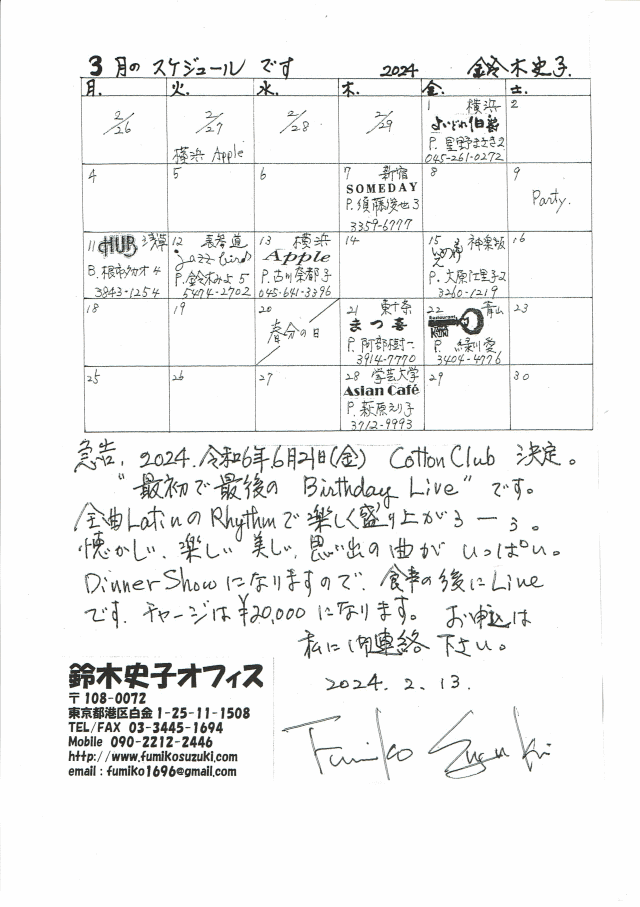 3月のスケジュールです 2024 鈴木史子.
月. 火. 水. 木. 金. 土.
2/26 2/27 2/28 2/29 1 横浜 2
横浜 Apple
P. 星野まさき 2
045-261-0272
4 5 6 7 新宿 8 9
SOMEDAY
P. 須藤俊也 3
3359-6777
Party.
11 HUB 浅草
B. 根市タカオ 4
3843-1254
12 表参道
jazz bird
P. 鈴木みよ 5
5474-2702
13 横浜
Apple
P. 古川奈都子
045-641-3396
14
15 神楽坂
P. 大原江里子 2
3260-1219
16
18 19 20
春分の日
21 東十条
まつ喜
P. 阿部樹一
3914-7770
22 青山
P. 緑川愛
3404-4776
23
25 26 27 28 学芸大学 29 30
Asian Café
P. 萩原えり子
3712-9993
急告, 2024. 令和6年6月21日(金) Cotton Club 決定。
"最初で最後の Birthday Live" です。
全曲LatinのRhythmで楽しく盛り上がろーぅ。
懐かしい、楽しい 美しい、思い出の曲が いっぱい。
Dinner Show になりますので、食事の後に Live
です. チャージは ¥20,000 になります。 お申込は
私に御連絡 下さい。
2024. 2. 13.
Fumiko Suzuki
鈴木史子オフィス
〒108-0072
東京都港区白金1-25-11-1508
TEL/FAX 03-3445-1694
Mobile 090-2212-2446
http://www.fumikosuzuki.com
email : fumiko1696@gmail.com